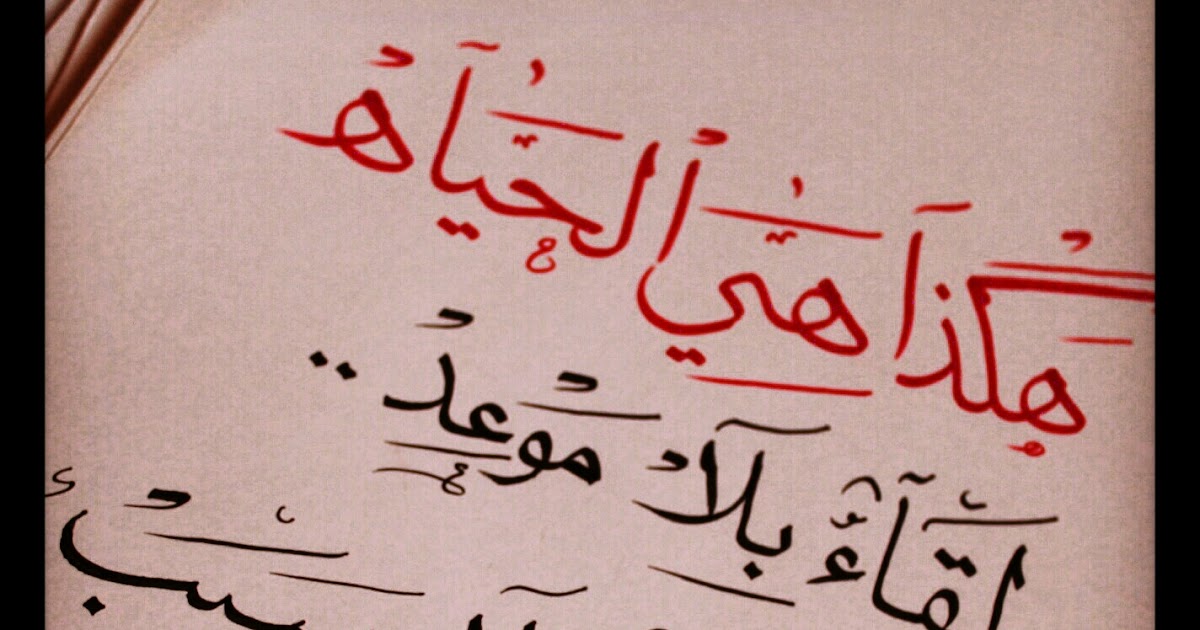 هكذا هي الحياه
لقاء بلا موعد ..
سبب